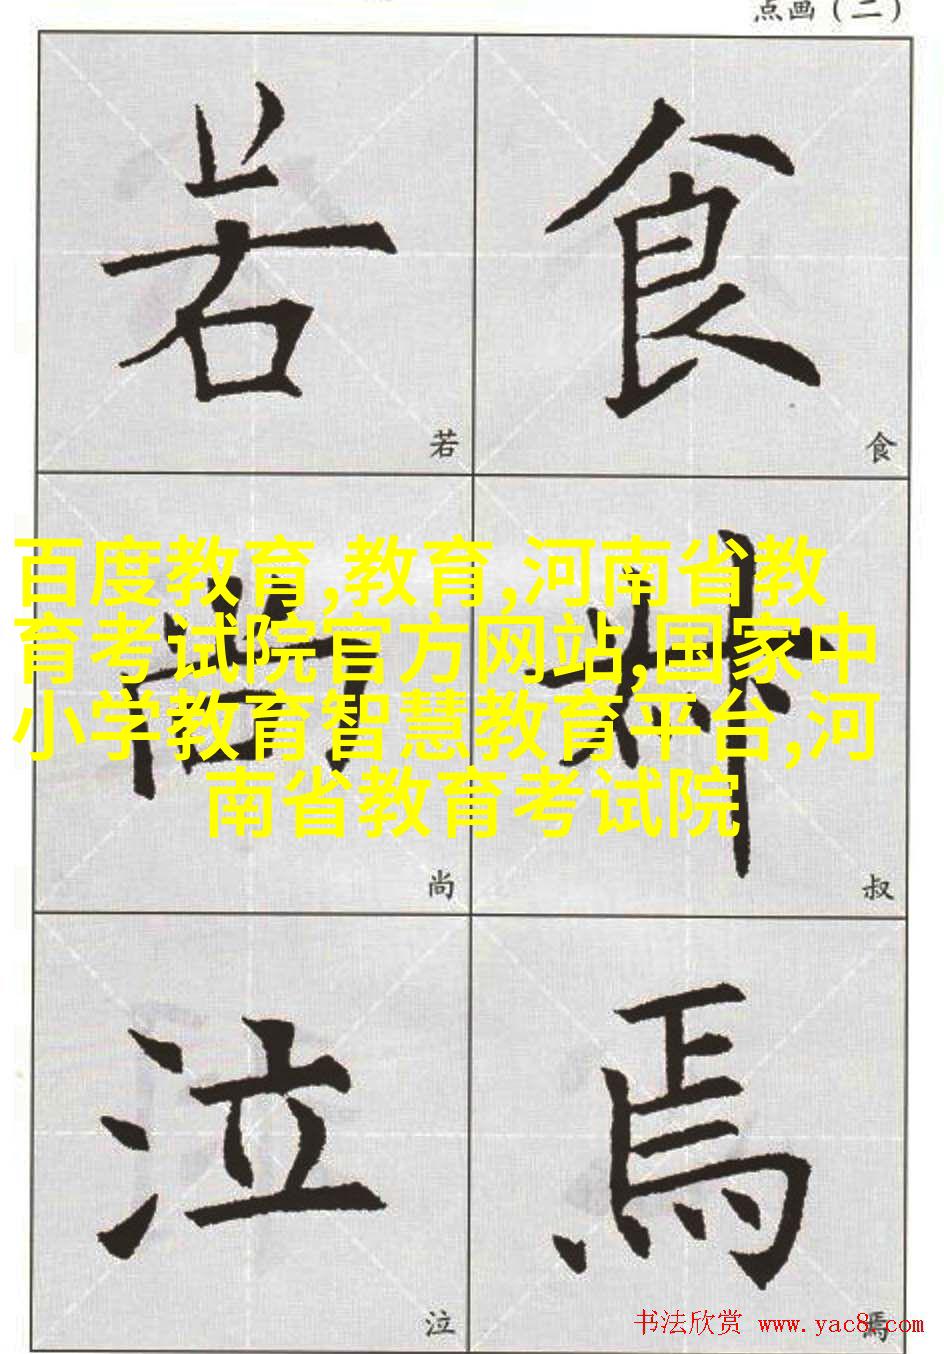 点画（二）
若
食
若
食
百度教育,教育,河南省教
育考试院官方网站,国家中
小学教育智慧教育平台,河
南省教育考试院
尚
叔
尚
叔
泣
焉
泣
焉
书法欣赏 www.yac8.com